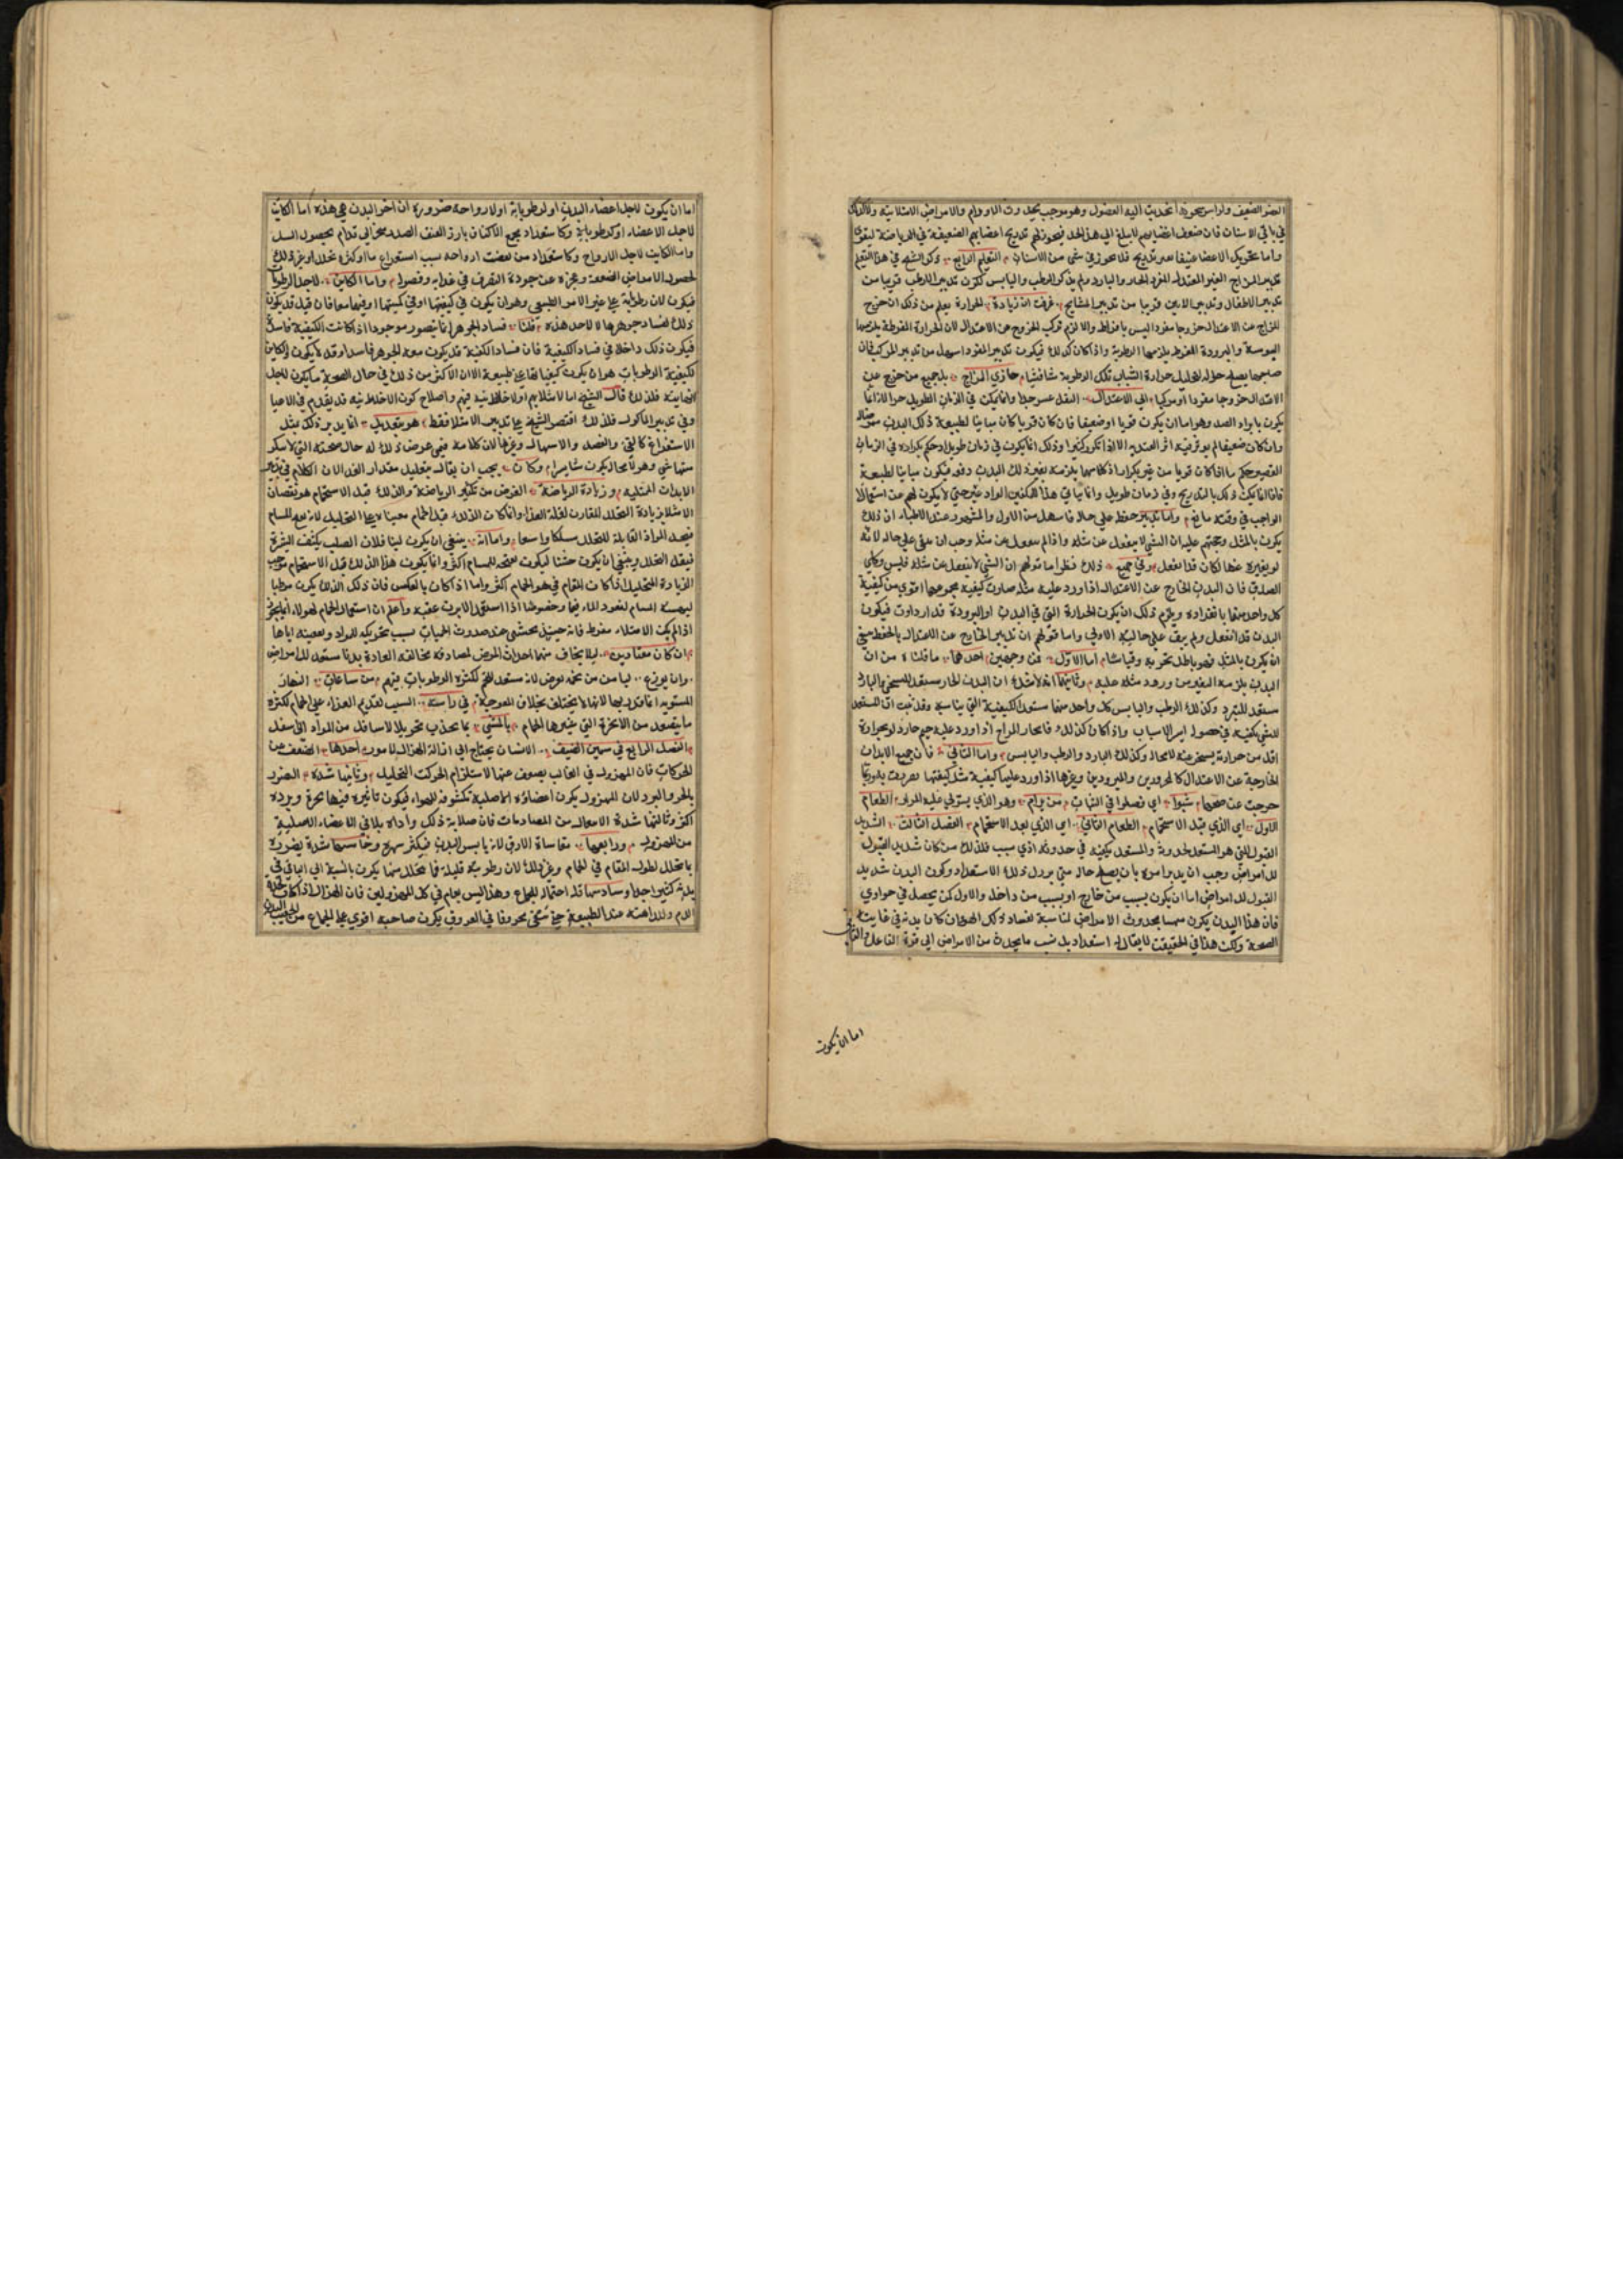 العضو الضعيف ولو اس يحوجه انحدبت اليه الفضول وهو موجب يحدوث الاورام والامراض الامتلائية
في باقي الاسنان فان ضعف اعضايهم لا يبلغ الي هذا الحد فيجوز لهم تدريج اعضايهم الضعيفة في الرياضة
واما تحريك الاعضا عنيفا بغير تدريج فلا يجوز في شي من الاسنان التعليم الرابع وكون الشيخ في هذا التعليم
تدبير المزاج الغير المعتدل المفرد الحار والبارد ولم يذكر الرطب واليابس لكون تدبير الرطب قريبا من
تدبير الاطفال وتدبير اليابس قريبا من تدبير المشايخ عرفت ان زيادة الحرارة يعلم من ذلك ان خروج
المزاج عن الاعتدال خروجا مفردا ليس بافراط والا لزم تركب الخروج عن الاعتدال لان الحرارة المفرطة يلزمها
اليبوسة والبرودة المفرطة يلزمها الرطوبة واذا كان كذلك فيكون تدبير المفرد اسهل من تدبير المركب فان
صاحبها يصلح حاله لتحليل حرارة الشباب تلك الرطوبة شافشيا حازي المزاج يلجميع من خرج عن
الاعتدال خروجا مفردا او مركبا الي الاعتدال النقل عسر جدا وانما يمكن في الزمان الطويل
يكون بايراد الضد وهو اما ان يكون قويا او ضعيفا فان كان قويا كان مباينا لطبيعة ذلك البدن
وان كان ضعيفا لم يوثر فيه اثر العتد به الا اذا تكرر كثيرا وذلك انما يكون في زمان طويل اذ حكم تكراره في الزمان
القصير حكم ما اذا كان قويا من غير تكرار اذ كلاهما يلزمه تغير ذلك البدن دفعة فيكون مباينا لطبيعة
فاذا انما يمكن ذلك بالتدريج وفي زمان طويل وانما ياتي هذا المكنين المراد
الواجب في وقته مانع واما تدبير حفظ علي حاله فاسهل من الاول والمشهور عند الاطباء ان ذلك
يكون بالمثل وحجتهم عليه ان الشي لا ينفعل عن مثله واذا لم ينفعل عن مثله وجب ان يبقي علي حاله لانه
لو تغير عنها لكان قد انفعل وفي جميع ذلك نظر اما قولهم ان الشي لا ينفعل عن مثله فليس بكلي
الصدق فان البدن الخارج عن الاعتدال اذا ورد عليه مثله صارت كيفية مجموعهما اقوي من كيفية
كل واحد منهما بانفراده ويلزم ذلك ان يكون الحرارة التي في البدن او البرودة قد ازدادت فيكون
البدن قد انفعل ولم يبق علي حاله الاولي واما قولهم ان تدبير الخارج عن الاعتدال بالحفظ
ان يكون بالمثل فهو باطل تجربة وقياسا اما الاول فن وجهين احدهما ما قلناه من ان
البدن يلزمه التغير من ورود مثله عليه وثانيهما انه لا شك ان البدن الحار مستعد للتسخن والبارد
مستعد للتبرد وكذلك الرطب واليابس كل واحد منهما مستعد للكيفية التي يناسبه وقد ثبت ان المستعد
للشي يكفيه في حصوله ايسر الاسباب واذا كان كذلك فالحار المزاج اذا ورد عليه جسم حار ولو بحرارة
اقل من حرارة يسخن عنه لا محالة وكذلك البارد والرطب واليابس واما الثاني فان جميع الابدان
الخارجة عن الاعتدال كالمحرورين والمبرودين وغيرها اذا ورد عليها كيفية مثل كيفيتها
خرجت عن صحتها شبوا اي فصلوا في الشباب من يرام وهو الذي يستولي عليه المرار الطعام
الاول اي الذي قبل الاستحمام الطعام الثاني اي الذي بعد الاستحمام الفصل الثالث الشديد
القبول للشي هو المستعد لحدوثه والمستعد يكفيه في حدوثه ادني سبب فلذلك من كان شديد القبول
للامراض وجب ان يدبر امره بان يصلح حاله حتي يزول ذلك الاستعداد وكون البدن شديد
القبول للامراض اما ان يكون بسبب من خارج او بسبب من داخل والاول كمن يحصل في حواري
فان هذا البدن يكون متهيا لحدوث الامراض المناسبة لفساد ذلك الهواء وان كان بدنه في غاية
الصحة ولكن هذا في الحقيقت لا يقال له استعداد بل نسب ما يحدث من الامراض الي قوة الفاعل
اما ان يكون
اما ان يكون لاجل اعضاء البدن او لرطوباته او لارواحه ضرورة ان اجزا البدن هي هذه اما الكاين
لاجل الاعضاء او كرطوباته وكاستعداد مجنح الاكتاف بارز العنف الصدر مخرالي قدام لحصول السل
واما الكاين لاجل الارواح وكاستعداد من ضعفت ارواحه بسبب استفراغ ما او كثرة تحلل او غير ذلك
لحصول الامراض الضعفة وعجزه عن جودة التصرف في غذايه وفضوله واما الكاين لاجل الرطوبات
فيكون لان رطوباته علي غير الامر الطبيعي وهو ان يكون في كيفيتها او في كميتها او فيهما معا فان قيل قد يكون
ذلك لفساد جوهرها لا لاحد هذه قلنا فساد الجوهر انما يتصور موجودا اذا كانت الكيفية فاسدة
فيكون ذلك داخلا في فساد الكيفية فان فساد الكيفية قد يكون معه الجوهر فاسدا وقد لا يكون والكاين
لكيفية الرطوبات هو ان يكون كيفيتها علي طبيعة الا ان الاكثر من ذلك في حال الصحة ما يكون لاجل
فلذلك قال الشيخ اما لامتلايهم او لاخلاط نيه فيهم واصلاح كون الاخلاط نيه قد تقدم في الاعيا
وفي تدبير الماكول فلذلك اقتصر الشيخ علي تدبير الامتلا فقط هو بتعديل انما يدبر ذلك بمثل
الاستفراغ كالقي والفصد والاسهال وغيرها لان كلامه فيمن عرض ذلك له حال صحته التي لا ينكر
منها شي وهو لا محالة يكون متايسرا وكان يجب ان يقال بتقليل مقدار الغذا لان الكلام في تدبير
الابدان الممتليه وزيادة الرياضة الغرض من تكثير الرياضة والدلك قبل الاستحمام هو نقصان
الامتلا بزيادة التحلل المقارن لقلة الغذا وانما كان الدلك قبل الحمام معينا علي التحليل لانه يفتح المسام
فيجد المواد القابلة للتحلل مسلكا واسعا واما انه ينبغي ان يكون لينا فلان الصلب يكثف البشرة
فيقل التحلل وينبغي ان يكون خشنا ليكون تفتحه للمسام اكثر وانما يكون هذا الدلك قبل الاستحمام موجب
الزيادة التحليل اذا كان المقام في هو الحمام اكثر واما اذا كان بالعكس فان ذلك الدلك يكون مرطبا
لتهيئة المسام لنفوذ الماء فيها وخصوصا اذا استعمل الابزن عقبه واعلم ان استعمال الحمام لهولاء انما يجوز
اذا لم يكن الامتلاء مفرط فانه حينيذ يخشي عند حدوث الحميات بسبب تحريكه للمواد وتعفينه اياها
ان كان معتادين ليلا يخاف منها احداث المرض لمصادفة مخالفته العادة بدنا مستعد للامراض
وان يوزع ليا من من تخمه تعرض لانه مستعد للتخم لكثرة الرطوبات فيهم من ساعات النهار
المستويه انما قال بها لانها لا تختلف بخلاف المعوجة في راسه السبب تقديم الغذاء علي الحمام لكثرة
ما يتصعد من الابخرة التي يثيرها الحمام بالمشي بما يجذب بتحريك الاسافل من المواد الي اسفل
الفصل الرابع في تسمين القضيف الانسان يحتاج الي ازالة الهزال لامور احدها الضعف عن
الحركات فان المهزول في الغالب يضعف عنها لاستلزام الحركت التحليل وثانيها شدة التضرر
بالحر والبرد لان المهزول يكون اعضاؤه الاصلية مكشوفه للهواء فيكون تاثيره فيها بحره وبرده
اكثر وثالثها شدة الانفعال من المصادمات فان صلابة ذلك واذاه يلاقي الاعضاء الاصلية
من المهزول ورابعها مقاساة الارق لانه يابس البدن فيكثر سهره وخامسها شدة تضرره
بما تحلل لطول المقام في الحمام وغير ذلك لان رطوبته قليلة فما تحلل منها يكون بالنسبة الي الباقي في
بدنه كثير اجدا وسادسها قلة احتمال للجماع وهذا ليس بعام في كل المهزولين فان الهزال اذا كان
الدم ولكراهته عند الطبيعة حتي بقي محروفا في العروق يكون صاحبه اقوي علي الجماع من